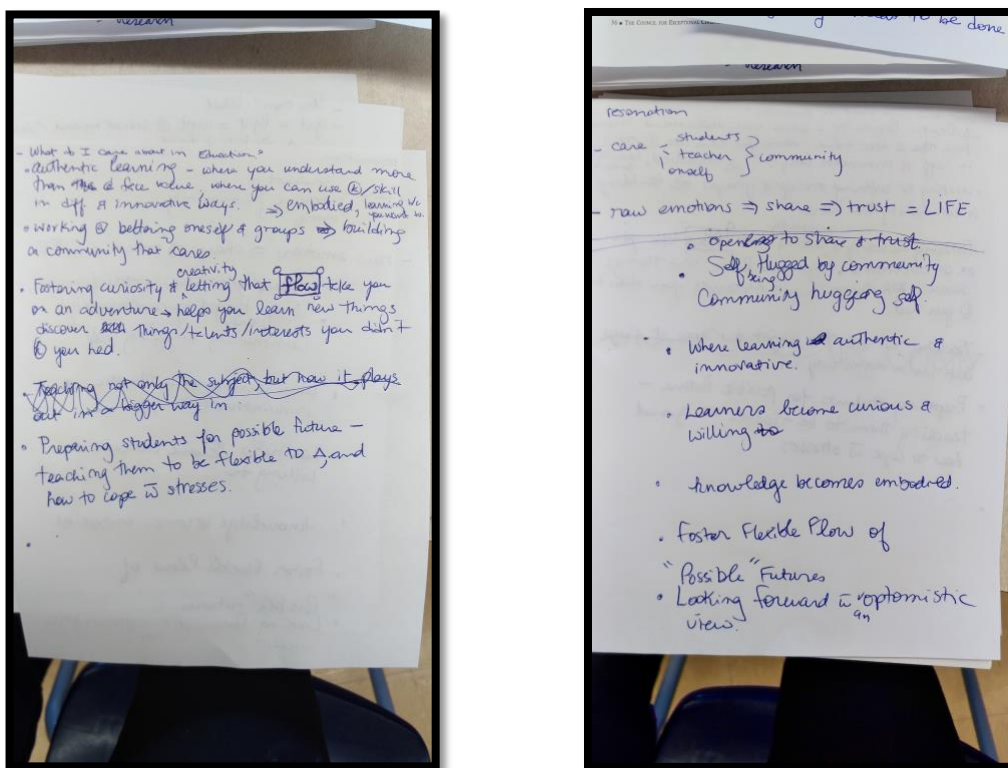 Research
- What do I care about in Education?
• authentic learning - where you understand more
than face value, where you can use Ⓚ/skill
in diff. & innovative ways. ⇒ embodied, learning
• working @ bettering oneself & groups ⇒ building
a community that cares
creativity
• Fostering curiosity & letting that flow take you
on an adventure → helps you learn new things
discover things/talents/interests you didn't
Ⓚ you had.
Teaching not only the subject, but how it plays
out in a bigger way in
• Preparing students for possible future -
teaching them to be flexible to Δ, and
how to cope w̄ stresses.
•
56 • THE COUNCIL FOR
to be done
Research
resonation
- care - students
teacher } community
oneself
- raw emotions ⇒ share ⇒ trust = LIFE
• opening to share & trust.
• Self being Hugged by community
Community hugging self.
• where learning authentic &
innovative.
• Learners become curious &
willing to
• knowledge becomes embodied.
• Foster Flexible Flow of
"Possible" Futures
• Looking forward w̄ an optomistic
view.